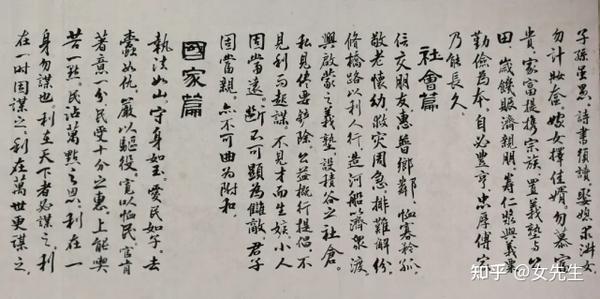 子孫雖愚,詩書須讀。娶媳求淑女
勿計妝奩。嫁女擇佳婿,勿慕富
貴。家富提攜宗族,置義塾與公
田。歲饑賑濟親朋,籌仁漿與義粟
勤儉為本,自必豐亨,忠厚傳家
乃能長久。
社會篇
信交朋友,惠普鄉鄰。恤寡矜孤。
敬老懷幼。救災周急,排難解紛。
修橋路以利人行,造河船以濟眾渡。
興啟蒙之義塾,設積谷之社倉。
私見盡要鏟除,公益概行提倡。不
見利而起謀,不見才而生嫉。小人
固當遠,斷不可顯為讎敵。君子
固當親,亦不可曲為附和。
國家篇
執法如山,守身如玉,愛民如子,去
蠹如仇。嚴以驅役,寬以恤民。官肯
著意一分,民受十分之惠。上能喫
苦一點,民沾萬點之恩。利在一
身勿謀也,利在天下者必謀之。利
在一時固謀之,利在萬世更謀之。
知乎 @女先生